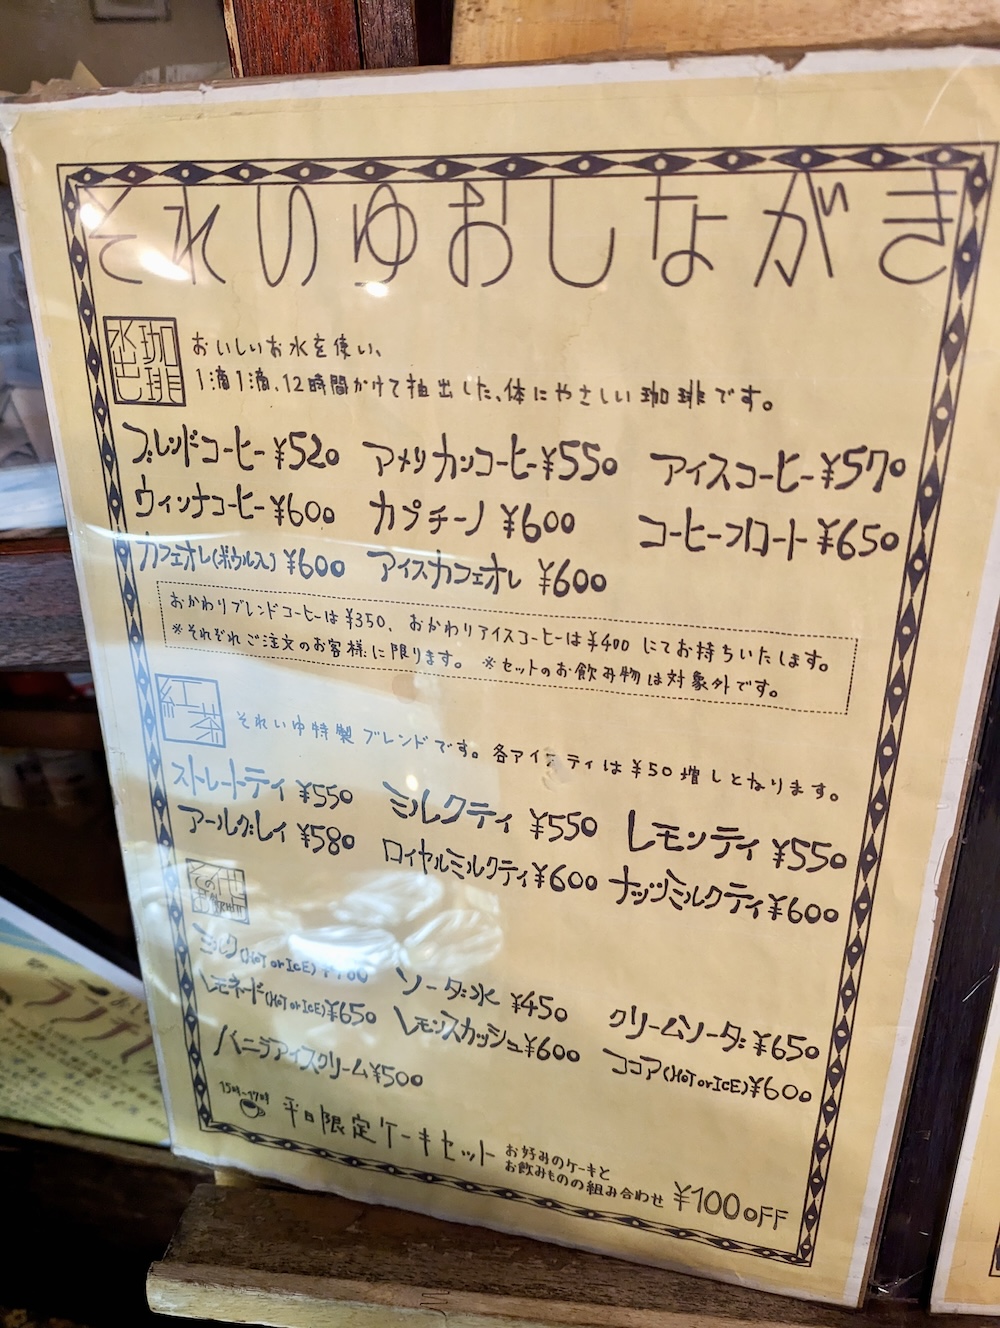 それいゆおしながき
水出し珈琲
おいしいお水を使い、
1滴1滴、12時間かけて抽出した、体にやさしい珈琲です。
ブレンドコーヒー ¥520 アメリカンコーヒー ¥550 アイスコーヒー ¥570
ウィンナコーヒー ¥600 カプチーノ ¥600 コーヒーフロート ¥650
カフェオレ(ボウル入) ¥600 アイスカフェオレ ¥600
おかわりブレンドコーヒーは¥350、おかわりアイスコーヒーは¥400にてお持ちいたします。
※それぞれご注文のお客様に限ります。 ※セットのお飲み物は対象外です。
紅茶
それいゆ特製ブレンドです。各アイスティは¥50増しとなります。
ストレートティ ¥550 ミルクティ ¥550 レモンティ ¥550
アールグレイ ¥580 ロイヤルミルクティ ¥600 ナッツミルクティ ¥600
その他お飲物
ミルク(HOT or ICE) ソーダ水 ¥450 クリームソーダ ¥650
レモネード(HOT or ICE) ¥650 レモンスカッシュ ¥600 ココア(HOT or ICE) ¥600
バニラアイスクリーム ¥500
15時~17時
平日限定ケーキセット
お好みのケーキと
お飲みものの組み合わせ ¥100OFF
ランチ